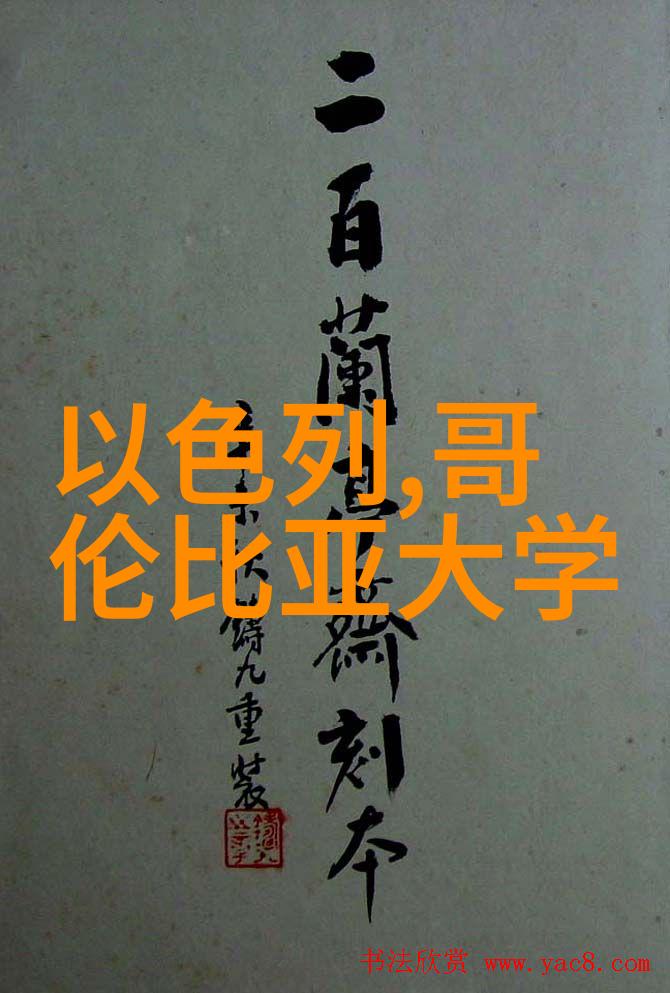 二百蘭亭齋刻本
未秋鑄九重裝
以色列,哥
伦比亚大学
书法欣赏 www.yac8.com